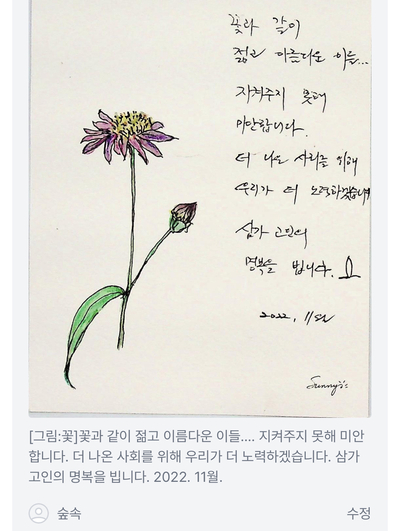 꽃과 같이
젊고 아름다운 이들...
지켜주지 못해
미안합니다.
더 나은 사회를 위해
우리가 더 노력하겠습니다
삼가 고인의
명복을 빕니다.
2022. 11월
Sunny's
[그림:꽃]꽃과 같이 젊고 이름다운 이들.... 지켜주지 못해 미안
합니다. 더 나온 사회를 위해 우리가 더 노력하겠습니다. 삼가
고인의 명복을 빕니다. 2022. 11월.
숲속
수정